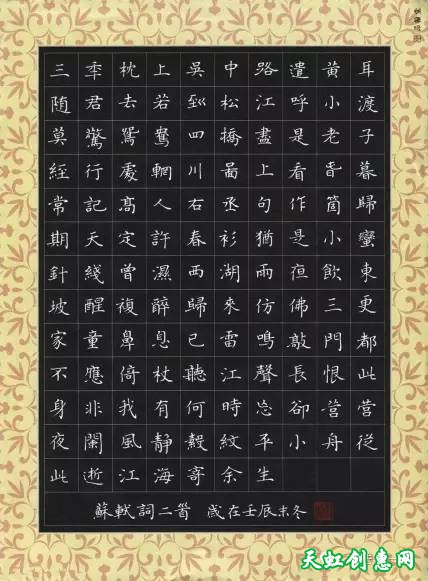 三秊枕上吳中路遣黃耳
随君去若到松江呼小渡
莫驚鴛鷺四橋盡是老子
經行處輞川啚上看春暮
常記高人右丞句作箇歸
期天定許春衫猶是小蠻
針綫曾濕西湖雨夜飲東
坡醒複醉歸來仿佛三更
家童鼻息已雷鳴敲門都
不應倚杖聽江聲長恨此
身非我有何時忘卻營營
夜闌風靜縠紋平小舟從
此逝江海寄余生
蘇軾詞二首 歲在壬辰末冬
天虹创惠网